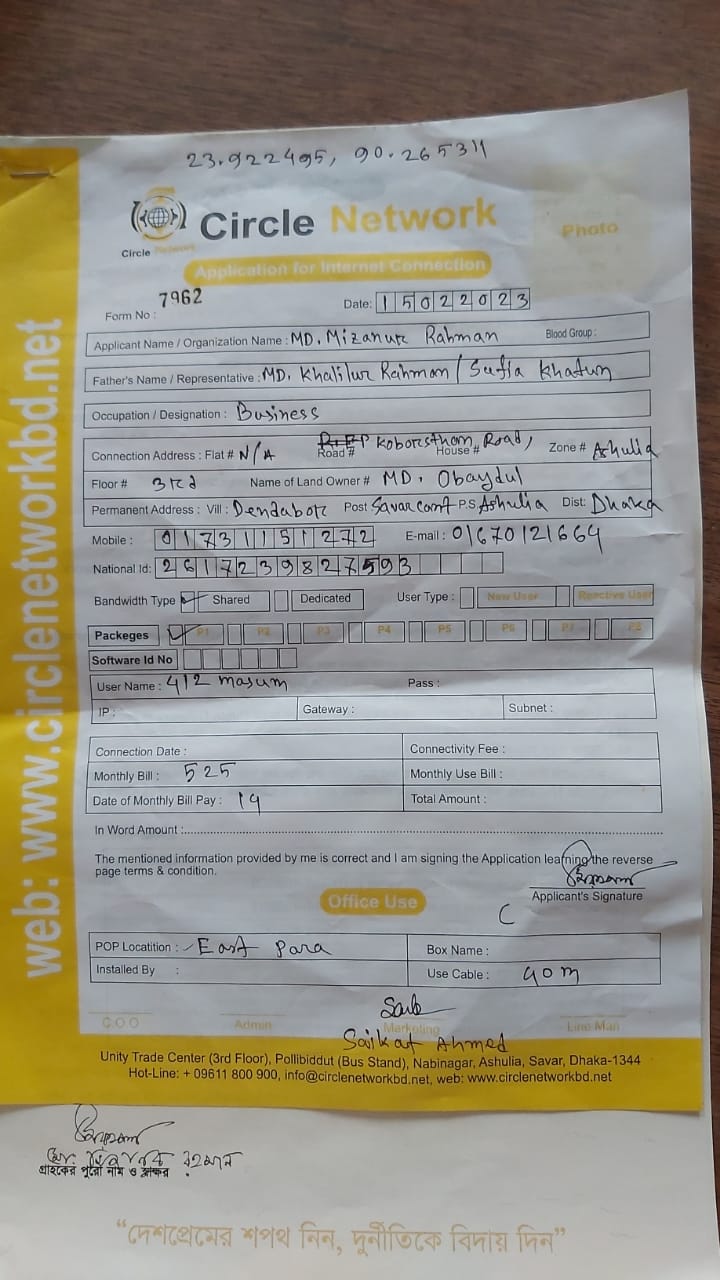 23.922495, 90.265311
Circle Network
Circle Network
Photo
Application for Internet Connection
Form No : 7962
Date: 15022023
Applicant Name / Organization Name : MD. Mizanur Rahman Blood Group :
Father's Name / Representative : MD. Khalilur Rahman / Sufia Khatun
Occupation / Designation : Business
Connection Address : Flat # N/A Road # Koborsthan Road, House # Zone # Ashulia
Floor # 3rd Name of Land Owner # MD. Obaydul
Permanent Address : Vill : Dendabor Post Savar cant P.S Ashulia Dist: Dhaka
Mobile : 01731151272 E-mail : 01670121664
National Id: 2617239827593
Bandwidth Type Shared Dedicated User Type : New User Reactive User
Packeges P1 P2 P3 P4 P5 P6 P7 P8
Software Id No
User Name : 412 masum Pass :
IP : Gateway : Subnet :
Connection Date : Connectivity Fee :
Monthly Bill : 525 Monthly Use Bill :
Date of Monthly Bill Pay : 14 Total Amount :
In Word Amount :
The mentioned information provided by me is correct and I am signing the Application learning the reverse
page terms & condition.
Applicant's Signature
Office Use
C
POP Locatition : East Para Box Name :
Installed By : Use Cable : 40m
C.O.O Admin Marketing Line Man
Saikat Ahmed
Unity Trade Center (3rd Floor), Pollibiddut (Bus Stand), Nabinagar, Ashulia, Savar, Dhaka-1344
Hot-Line: + 09611 800 900, info@circlenetworkbd.net, web: www.circlenetworkbd.net
web: www.circlenetworkbd.net
মোঃ মিজানুর রহমান
গ্রাহকের পুরো নাম ও স্বাক্ষর
“দেশপ্রেমের শপথ নিন, দুর্নীতিকে বিদায় দিন”